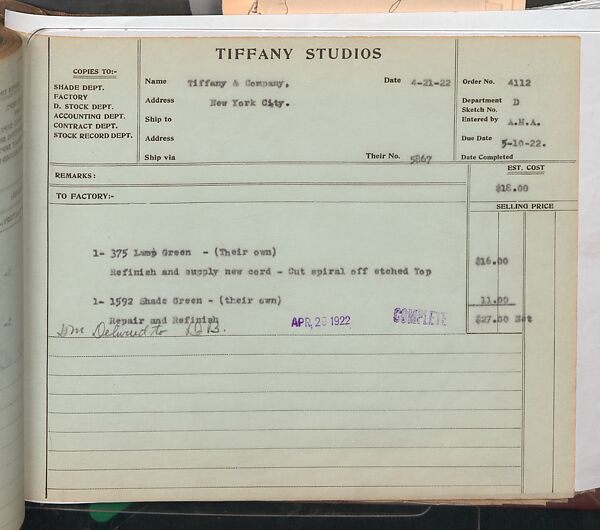 TIFFANY STUDIOS
COPIES TO:-
SHADE DEPT.
FACTORY
D. STOCK DEPT.
ACCOUNTING DEPT.
CONTRACT DEPT.
STOCK RECORD DEPT.
Name Tiffany & Company, Date 4-21-22
Address New York City.
Ship to
Address
Ship via Their No. 5867
Order No. 4112
Department D
Sketch No.
Entered by A.H.A.
Due Date 5-10-22.
Date Completed
REMARKS:
EST. COST
$18.00
TO FACTORY:-
SELLING PRICE
1- 375 Lamp Green - (Their own)
Refinish and supply new cord - Cut spiral off etched Top $16.00
1- 1592 Shade Green - (their own) 11.00
Repair and Refinish $27.00 Net
Delivered to
APR, 26 1922 COMPLETE